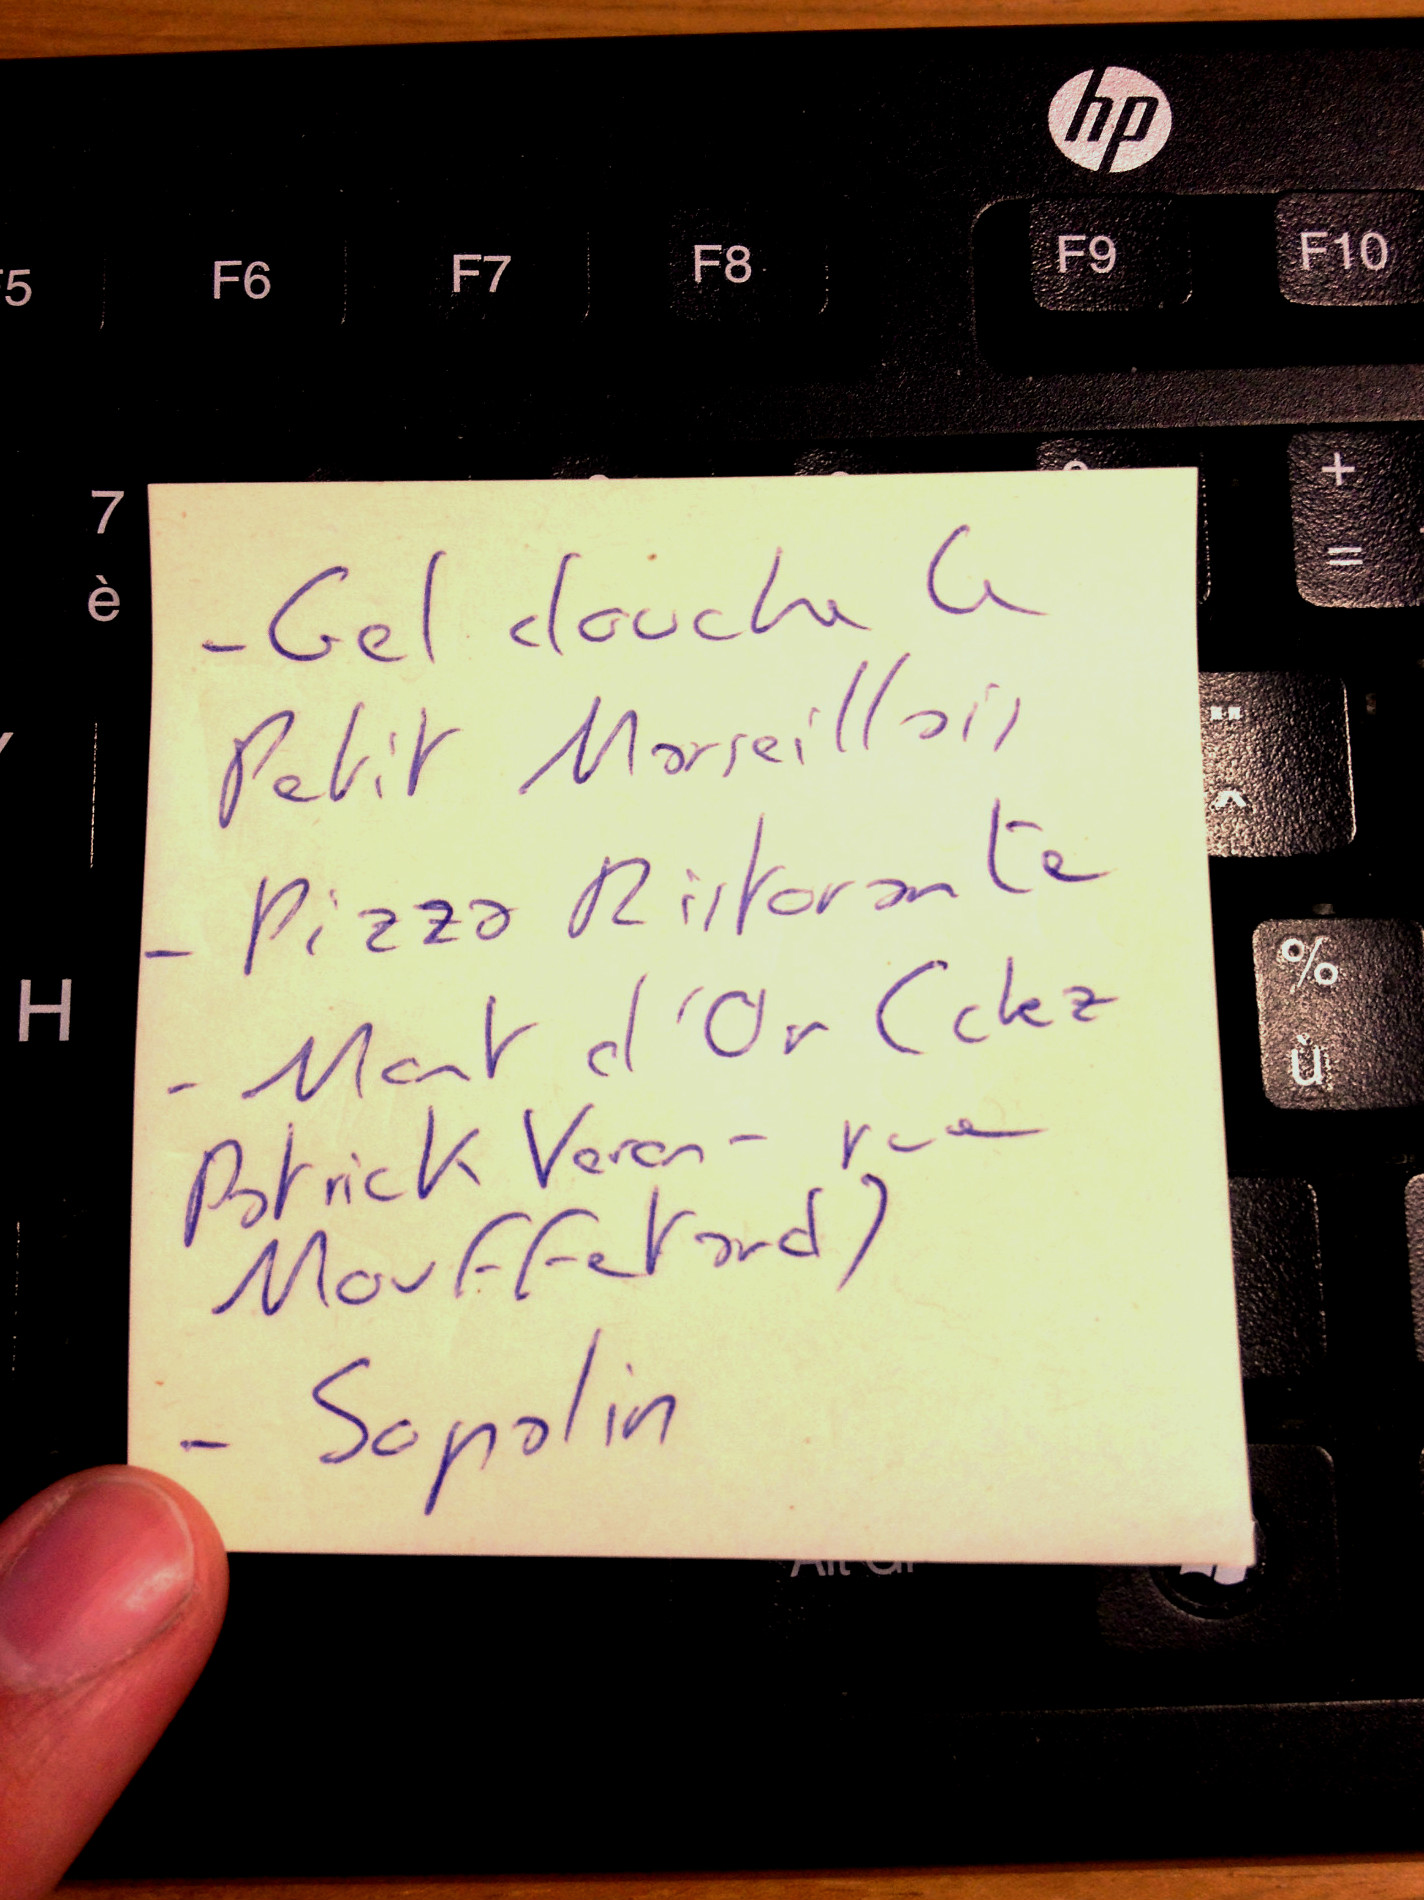 hp
F5 F6 F7 F8 F9 F10
7
è
+
=
- Gel douche Le
Petit Marseillais
¨
^
- Pizza Ristorante
%
ù
H
- Mont d'Or (chez
Patrick Veron - rue
Mouffetard)
- Sopalin
Alt Gr